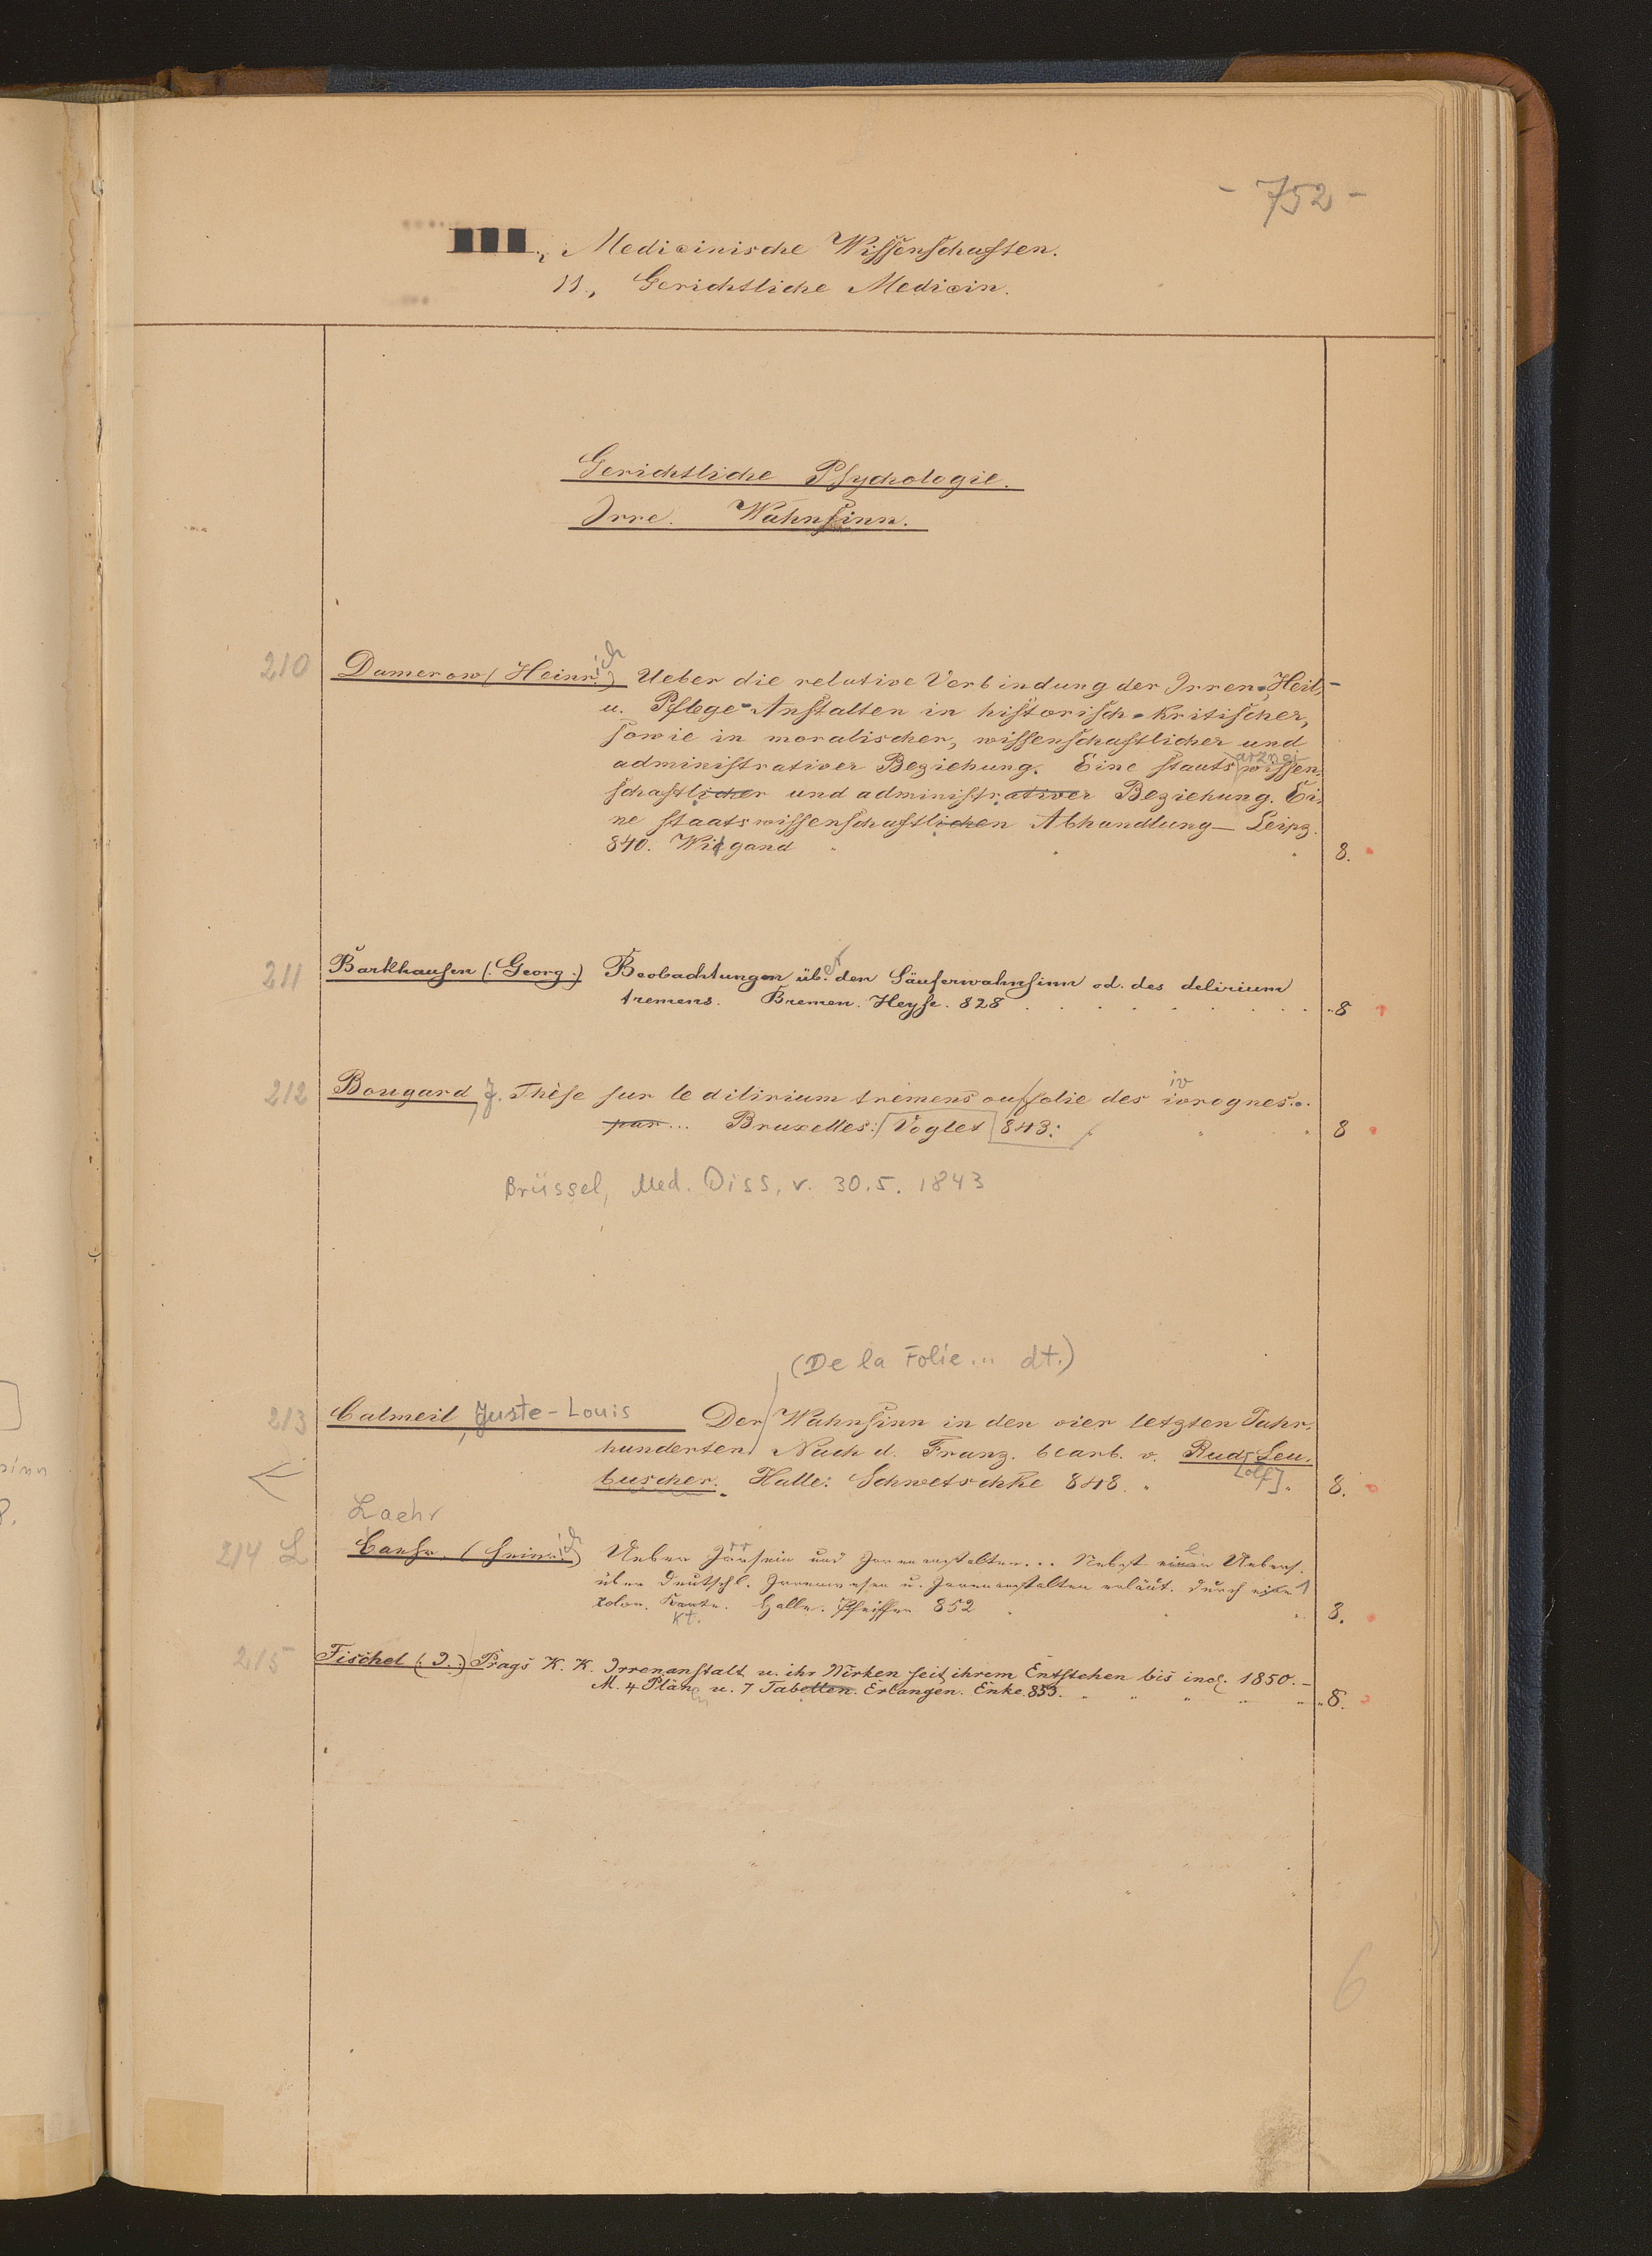 - 752 -
Medicinische Wissenschaften.
11., Gerichtliche Medicin.
Gerichtliche Psychologie.
Irre. Wahnsinn.
210 Damerow (Heinrich) Ueber die relative Verbindung der Irren-Heil-
u. Pflege-Anstalten in historisch-kritischer,
sowie in moralischer, wissenschaftlicher und
administrativer Beziehung. Eine staatsarzneiwissen-
schaftlicher und administrativer Beziehung. Ei-
ne staatswissenschaftlichen Abhandlung – Leipz.
840. Wigand 8.
211 Barkhausen (Georg.) Beobachtungen über den Säuferwahnsinn od. des delirium
tremens. Bremen. Heyse. 828 8
212 Bougard, J. Thèse sur le dilirium tremens ou folie des ivrognes...
par... Bruxelles: Voglet 843: 8
Brüssel, Med. Diss. v. 30.5. 1843
(De la Folie... dt.)
213 Calmeil, Juste-Louis Der Wahnsinn in den vier letzten Jahr-
hunderten Nach d. Franz. bearb. v. Rud[olf] Leu-
buscher. Halle: Schwetschke 848. 8.
Laehr
214 L Laehr. (Heinrich) Ueber Irrsein und Irrenanstalten... Nebst einer Uebers.
über Deutschl. Irrenwesen u. Irrenanstalten erläut. durch eine 1
kolor. Karte. Halle. Pfeiffer 852 8.
Kt.
215 Fischel (I.) Prags K. K. Irrenanstalt u. ihr Wirken seit ihrem Entstehen bis incl. 1850. –
M. 4 Plänen u. 7 Tabellen. Erlangen. Enke. 853. 8.
6